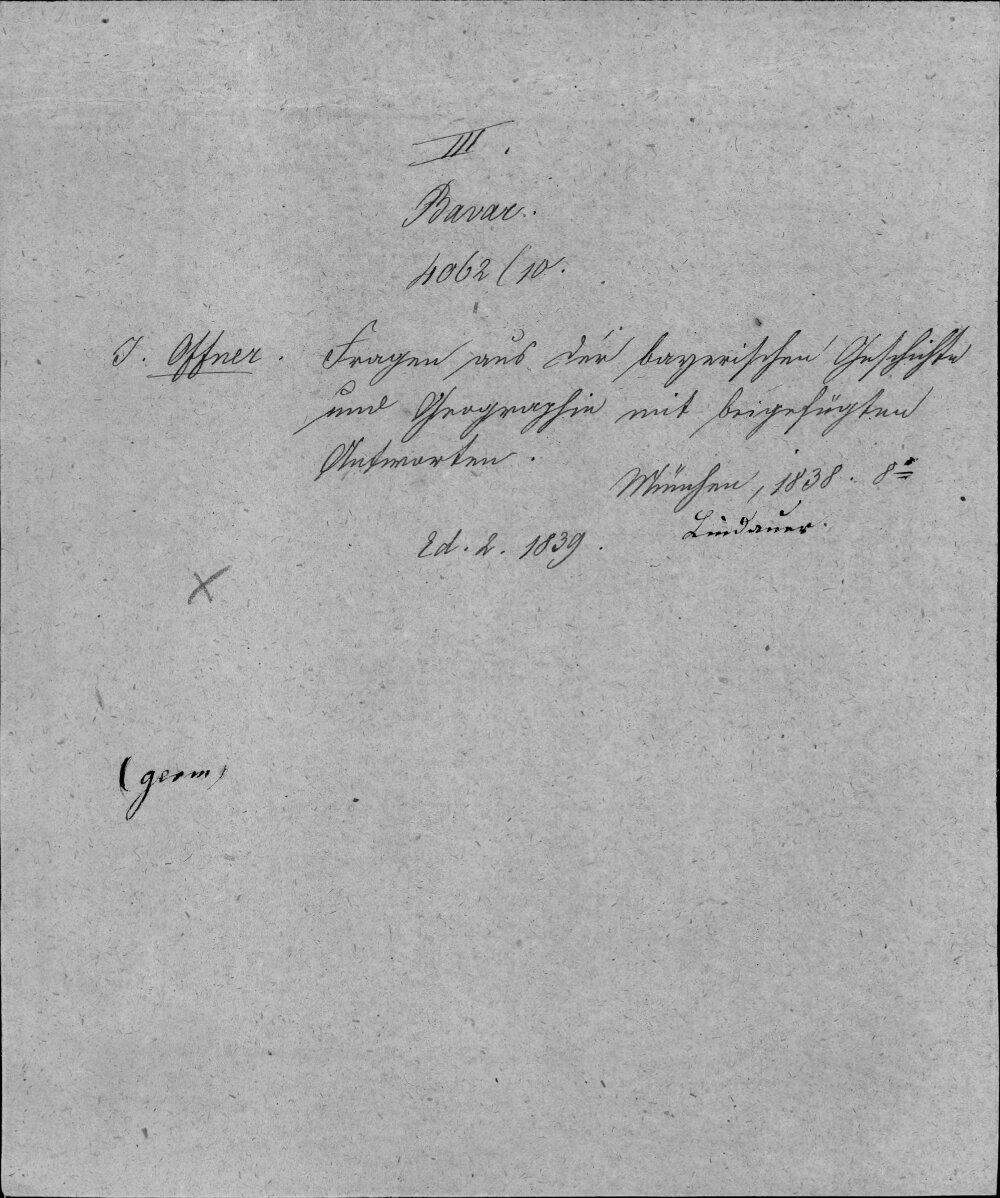 III.
Bavar.
4062 (10.
J. Offner. Fragen aus der bayerischen Geschichte
und Geographie mit beigefügten
Antworten.
München, 1838. 8°
Lindauer.
Ed. 2. 1839.
(germ)